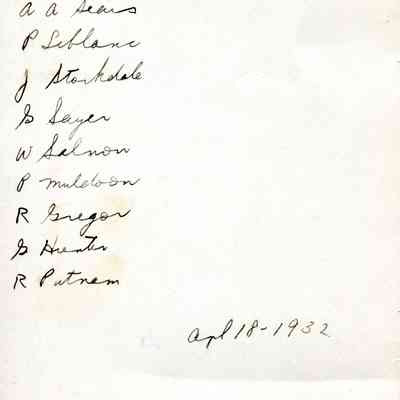 A A Sears
P Leblanc
J Stockdale
G Sayer
W Salmon
P Muldoon
R Gregor
G Hunter
R Putnam
Apl 18-1932